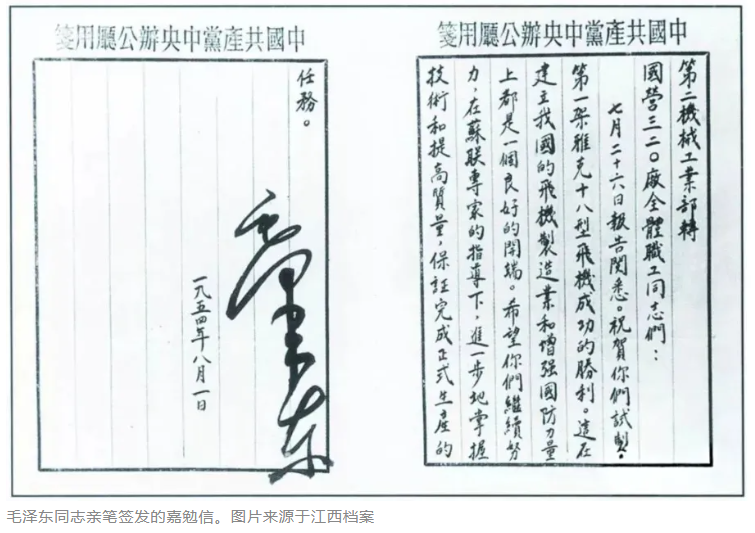 中國共產黨中央辦公廳用箋
第二機械工業部轉
國营三二〇廠全體職工同志們：
七月二十六日報告閱悉。祝賀你們試製
第一架雅克十八型飛機成功的勝利。這在
建立我國的飛機製造業和增强國防力量
上都是一個良好的開端。希望你們繼續努
力，在蘇联專家的指導下，進一步地掌握
技術和提高質量，保証完成正式生產的
中國共產黨中央辦公廳用箋
任務。
毛澤東
一九五四年八月一日
毛泽东同志亲笔签发的嘉勉信。图片来源于江西档案